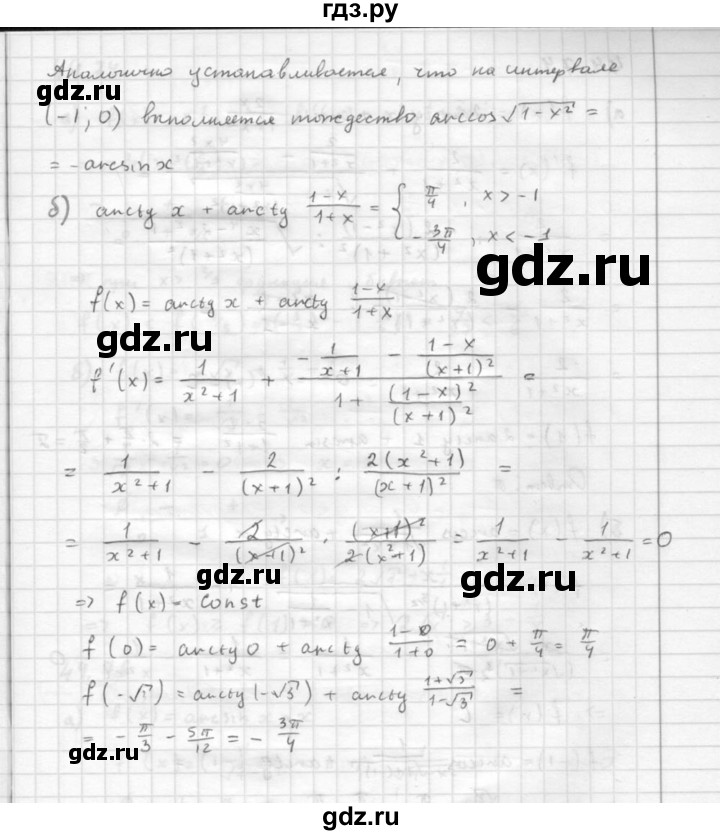 гдз.ру
Аналогично устанавливается, что на интервале
(-1; 0) выполняется тождество arccos √(1-x²) =
= - arcsin x
б) arctg x + arctg (1-x)/(1+x) = { π/4, x > -1
- 3π/4, x < -1
gdz.ru
f(x) = arctg x + arctg (1-x)/(1+x)
gdz.ru
f'(x) = 1/(x²+1) + (-1/(x+1) - (1-x)/(x+1)²)/(1 + (1-x)²/(x+1)²) =
= 1/(x²+1) - 2/(x+1)² : 2(x²+1)/(x+1)² =
gdz.ru
= 1/(x²+1) - 2/(x+1)² · (x+1)²/2(x²+1) = 1/(x²+1) - 1/(x²+1) = 0
gdz.ru
gdz.ru
=> f(x) = const
f(0) = arctg 0 + arctg (1-0)/(1+0) = 0 + π/4 = π/4
f(-√3) = arctg(-√3) + arctg (1+√3)/(1-√3) =
= - π/3 - 5π/12 = - 3π/4
gdz.ru
gdz.ru
gdz.ru